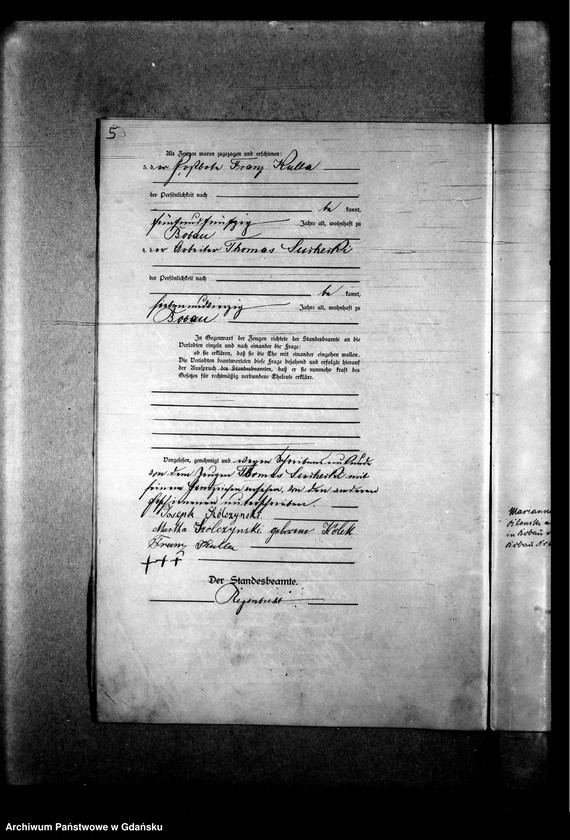 5
Als Zeugen waren zugezogen und erschienen:
3. der Postbote Franz Kulla
der Persönlichkeit nach
be kannt,
fünfundfünfzig Jahre alt, wohnhaft zu
Bobau
4. der Arbeiter Thomas
der Persönlichkeit nach
be kannt,
Jahre alt, wohnhaft zu
Bobau
In Gegenwart der Zeugen richtete der Standesbeamte an die
Verlobten einzeln und nach einander die Frage:
ob sie erklären, daß sie die Ehe mit einander eingehen wollen.
Die Verlobten beantworteten diese Frage bejahend und erfolgte hierauf
der Ausspruch des Standesbeamten, daß er sie nunmehr kraft des
Gesetzes für rechtmäßig verbundene Eheleute erkläre.
Vorgelesen, genehmigt und wegen Schreibensunkunde
von dem Zeugen Thomas mit
seinem Handzeichen versehen, von den anderen
Erschienenen unterschrieben.
Joseph
Martha geborene
Franz Kulla
+++
Der Standesbeamte.
Mariann
in Bobau
Bobau
Archiwum Państwowe w Gdańsku